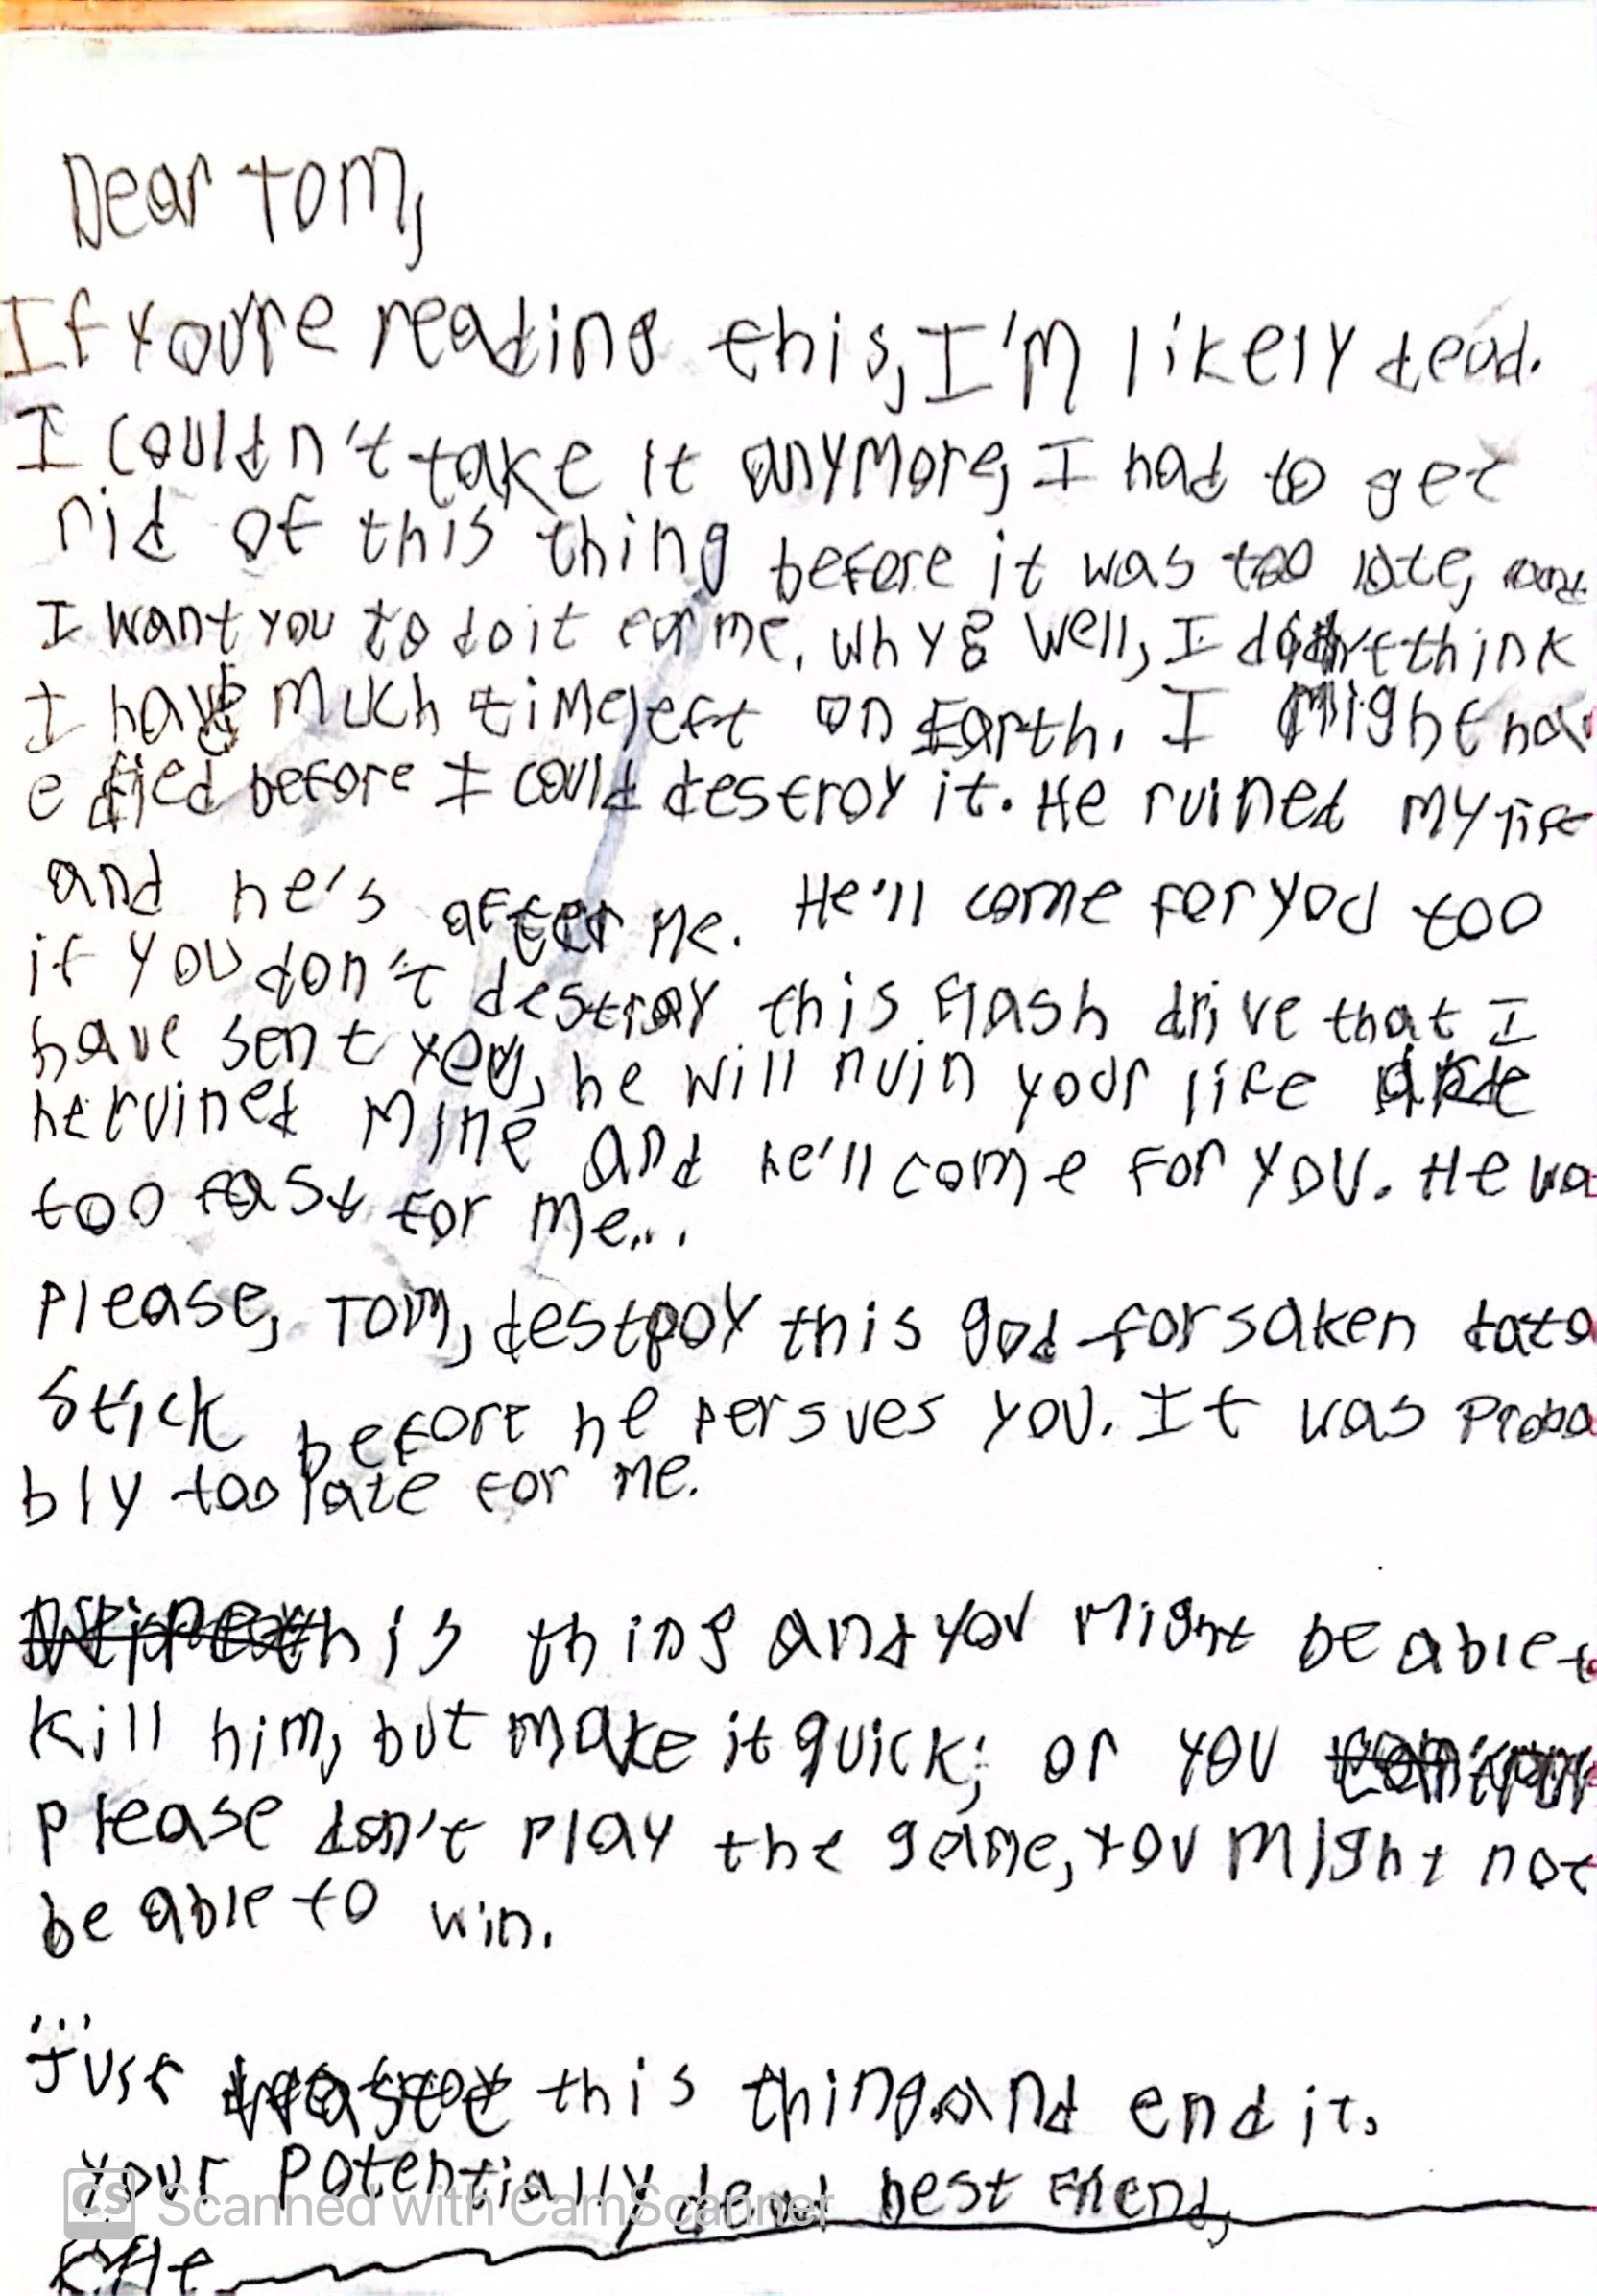 Dear Tom,
If you're reading this, I'm likely dead.
I couldn't take it anymore, I had to get
rid of this thing before it was too late, and
I want you to do it for me. Why? Well, I don't think
I have much time left on Earth. I might hav
e died before I could destroy it. He ruined my life
and he's after me. He'll come for you too
if you don't destroy this flash drive that I
have sent you, he will ruin your life like
he ruined mine and he'll come for you. He wa
too fast for me...
Please, Tom, destroy this god-forsaken data
stick before he persues you. It was proba
bly too late for me.
this thing and you might be able t
kill him, but make it quick; or you
please don't play the game, you might not
be able to win.
...
Just this thing and end it.
Your potentially dead best friend,
CS Scanned with CamScanner